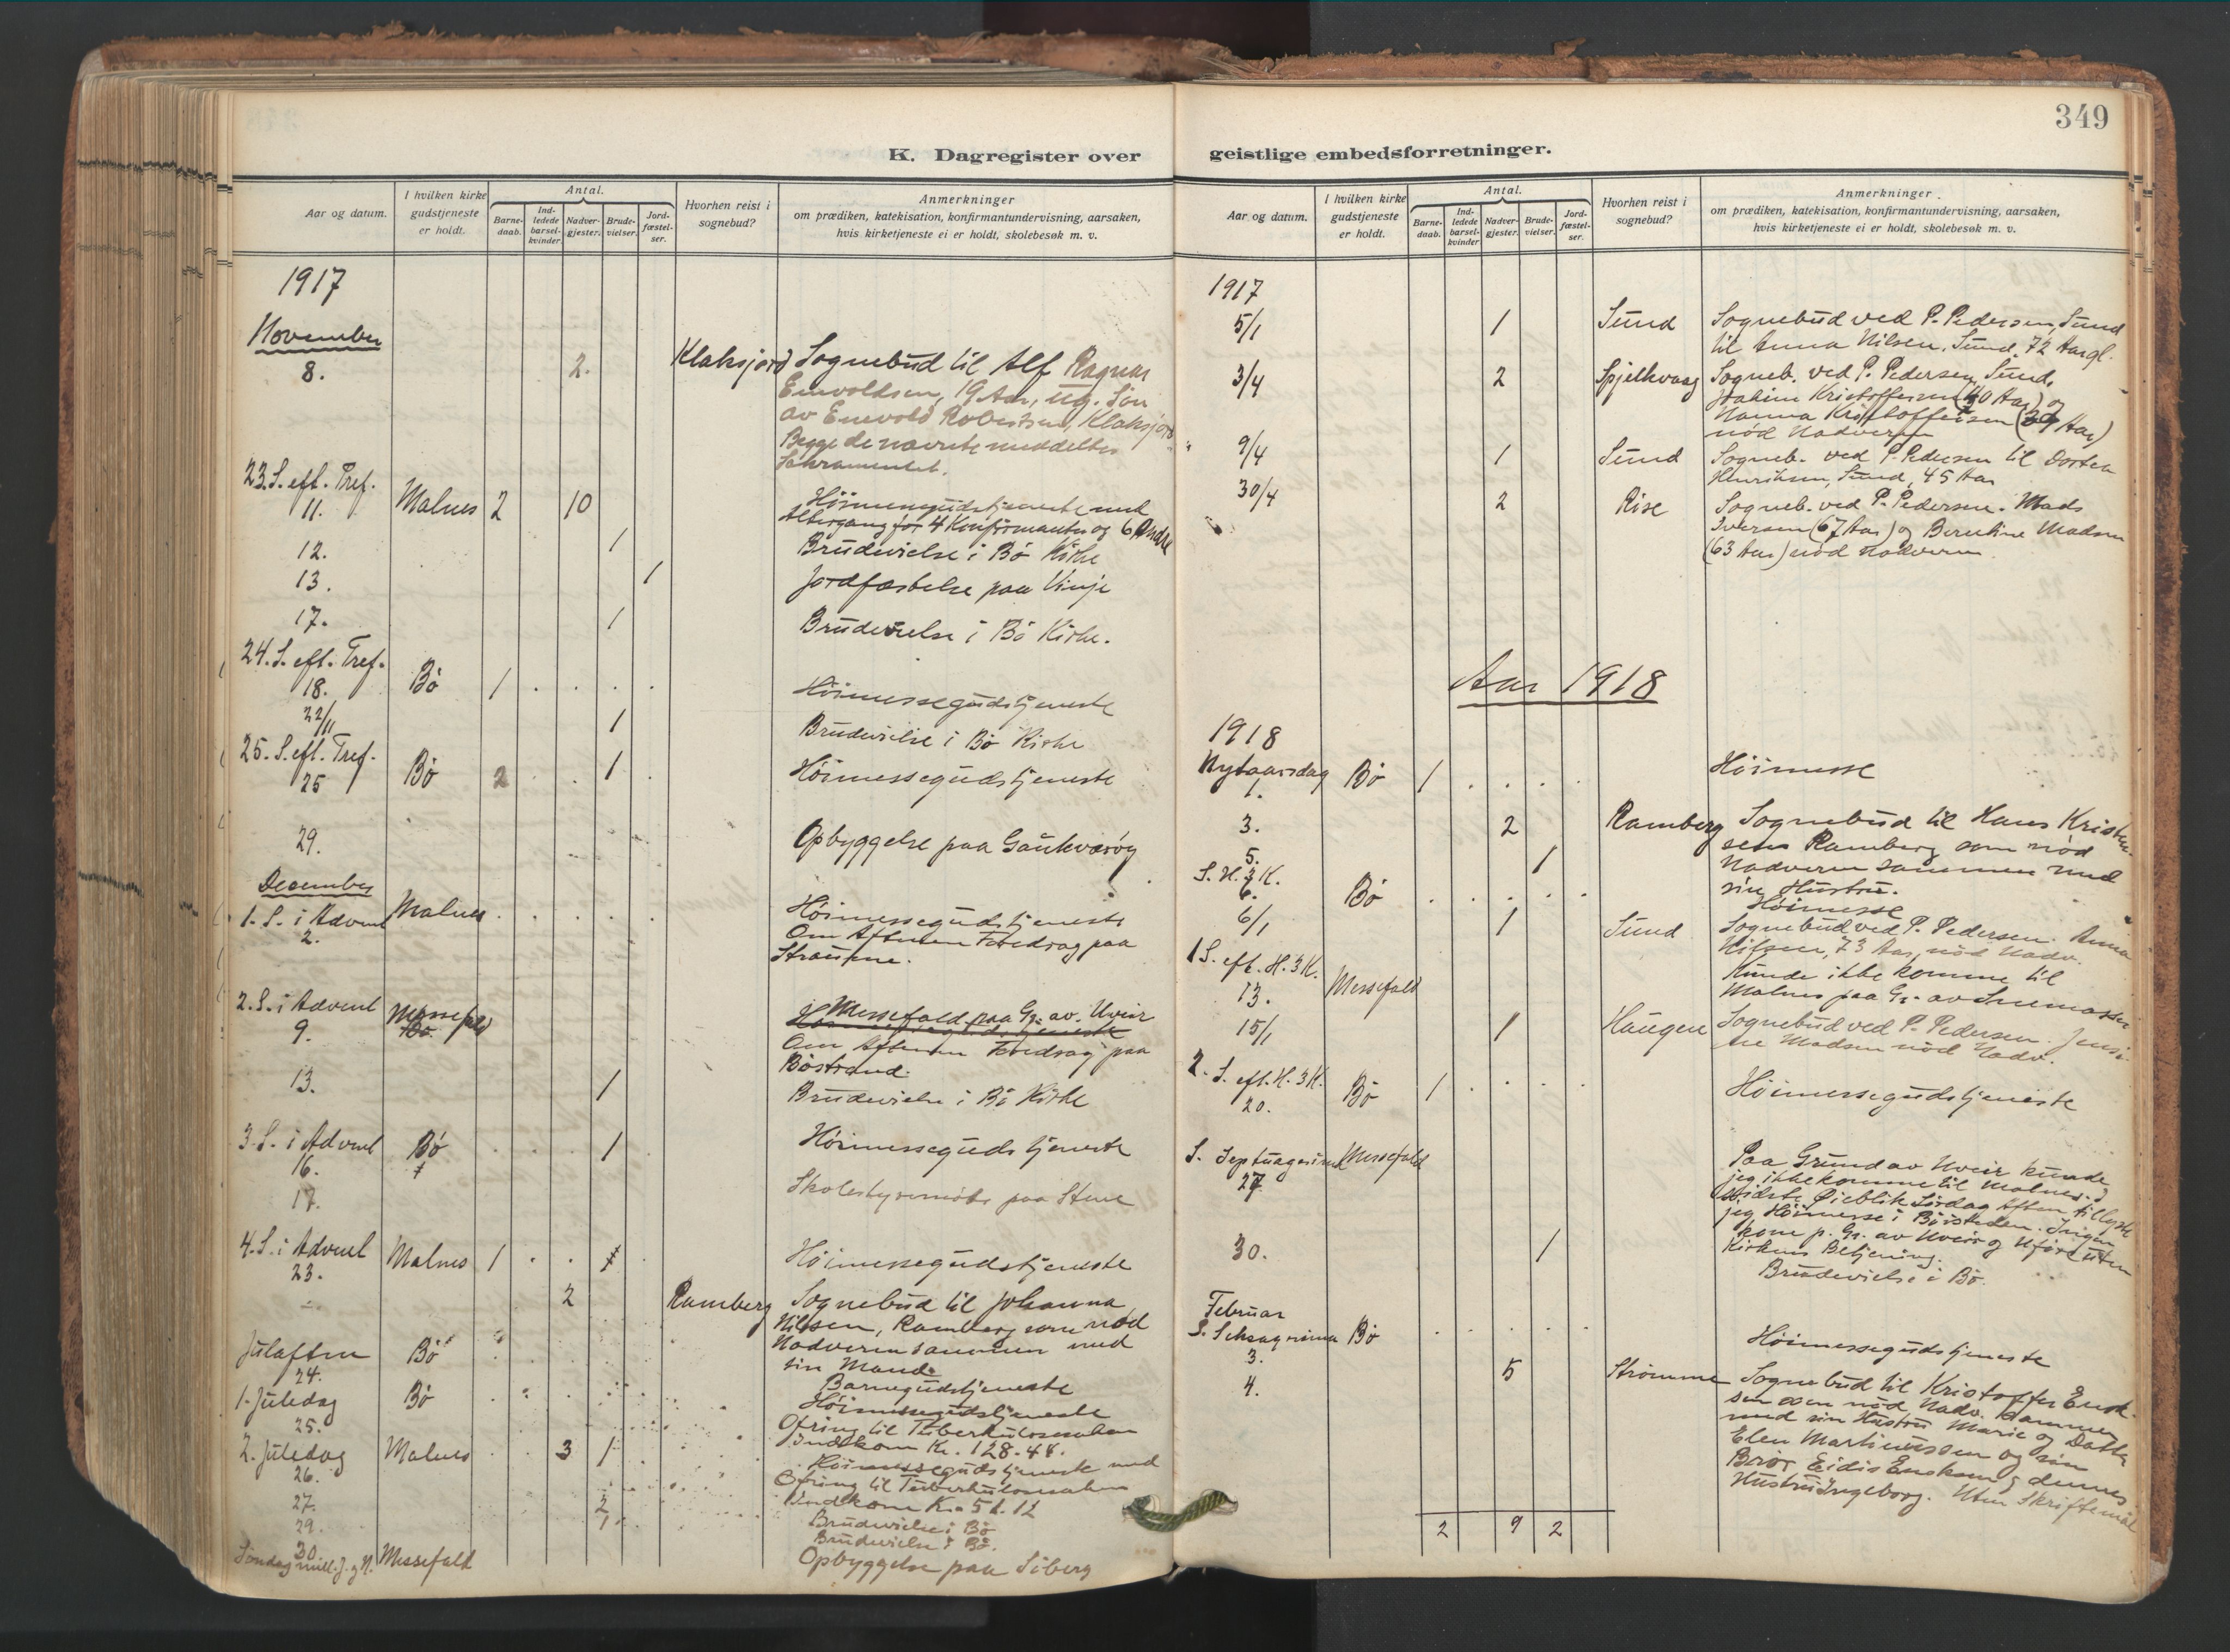 K. Dagregister over
Aar og datum.
I hvilken kirke
gudstjeneste
er holdt.
Antal.
Barne-
daab.
Ind-
ledede
barsel-
kvinder.
Nadver-
gjester.
Brude-
vielser.
Jord-
fæstel-
ser.
Hvorhen reist i
sognebud?
Anmerkninger
om prædiken, katekisation, konfirmantundervisning, aarsaken,
hvis kirketjeneste ei er holdt, skolebesøk m. v.
1917
November
8. 2. Klaksjord Sognebud til Alf Ragnar
Enevoldsen, 19 Aar, ug. Søn
av Enevold Robertsen, Klaksjord
Begge de nævnte meddeltes
Sakramentet.
23. S. eft. Tref.
11. Malnes 2 10 Høimessegudstjeneste med
Altergang for 4 Konfirmanter og 6 Andre
12. 1 Brudevielse i Bø Kirke
13. 1 Jordfæstelse paa Vinje
17. 1 Brudevielse i Bø Kirke.
24. S. eft. Tref.
18. Bø 1 . . . . Høimessegudstjeneste
22/11 1 Brudevielse i Bø Kirke
25. S. eft. Tref.
25 Bø 2 . . 1 . Høimessegudstjeneste
29. Opbyggelse paa Gaukværøy
December
1. S. i Advent Malnes . . . . . Høimessegudstjeneste
2. Om Aftenen Foredrag paa
Straumne.
2. S. i Advent Messefald Messefald paa Gr. av. Uveir
9. Bø Høimessegudstjeneste
Om Aftenen Foredrag paa
Bøstrand.
13. 1 Brudevielse i Bø Kirke
3. S. i Advent Bø . . . 1 . Høimessegudstjeneste
16.
17. Skolestyremøte paa Steine
4. S. i Advent Malnes 1 . . 1 Høimessegudstjeneste
23.
2 Ramberg Sognebud til Johanna
Nilssen, Ramberg som nød
Nadveren sammen med
sin Mand.
Julaften Bø Barnegudstjeneste
24.
1. Juledag Bø Høimessegudstjeneste
25. Ofring til Tuberkulosesaken
Indkom Kr. 128.48.
2. Juledag Malnes . . 3 1 . Høimessegudstjeneste med
26. Ofring til Tuberkulosesaken
Indkom Kr. 51.12
27. 2 Brudevielse i Bø
29. 1 Brudevielse i Bø.
30
Søndag mell. J. og N. Messefald Opbyggelse paa Siberg
349
geistlige embedsforretninger.
Aar og datum.
I hvilken kirke
gudstjeneste
er holdt.
Antal.
Barne-
daab.
Ind-
ledede
barsel-
kvinder
Nadver-
gjester.
Brude-
vielser.
Jord-
fæstel-
ser.
Hvorhen reist i
sognebud?
Anmerkninger.
om prædiken, katekisation, konfirmantundervisning, aarsaken,
hvis kirketjeneste ei er holdt, skolebesøk m. v.
1917
5/1 1 Sund Sognebud ved P. Pedersen, Sund
til Anna Nilsen, Sund, 72 Aar gl.
3/4 2 Spjelkvaag Sogneb. ved P. Pedersen, Sund.
Joakim Kristoffersen (40 Aar) og
Hanna Kristoffersen (39 Aar)
nød Nadveren
9/4 1 Sund Sogneb. ved P. Pedersen til Dortea
Henriksen, Sund, 45 Aar
30/4 2 Rise Sogneb. ved P. Pedersen. Mads
Iversen (67 Aar) og Berentine Madsen
(63 Aar) nød Nadveren.
Aar 1918
1918
Nytaarsdag Bø 1 . . . . Høimesse
1.
3. 2 Ramberg Sognebud til Hans Kristen-
sen Ramberg som nød
Nadveren sammen med
sin Hustru.
5. 1
S. H. 3 K.
6. Bø . . . . . Høimesse
6/1 1 Sund Sognebud ved P. Pedersen. Anna
Nilsen, 73 Aar, nød Nadv.
1 S. eft. H. 3 K. Messefald Kunde ikke komme til
13. Malnes paa Gr. av Snemasser
15/1 1 Haugen Sognebud ved P. Pedersen. Jensi-
ne Madsen nød Nadv.
2. S. eft. H. 3 K.
20. Bø 1 . . . . Høimessegudstjeneste
S. Septuagesima Messefald Paa Grund av Uveir kunde
27 jeg ikke komme til Malnes. I
sidste Øieblik Lørdag Aften tillyste
jeg Høimesse i Bø isteden. Ingen
kom p. Gr. av Uveir og Uføre uten
Kirkens Betjening.
30. 1 Brudevielse i Bø.
Februar
S. Seksagesima Bø . . . . . Høimessegudstjeneste
3.
4. 5 Strømme Sognebud til Kristoffer Enok-
sen som nød Nadv. sammen
med sin Hustru Marie og Datter
Elen Martinussen og sin
Bror Eidis Enoksen og dennes
Hustru Ingeborg. Uten Skriftemål
2 9 2